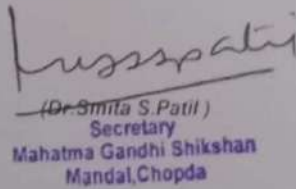 (Dr.Smita S.Patil )
Secretary
Mahatma Gandhi Shikshan
Mandal,Chopda